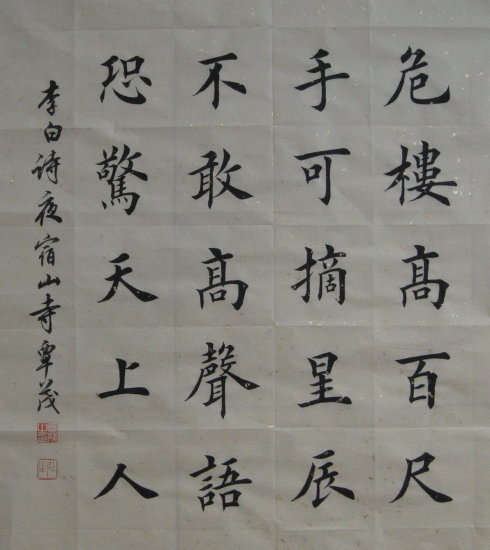 危樓高百尺
手可摘星辰
不敢高聲語
恐驚天上人
李白诗夜宿山寺覃茂